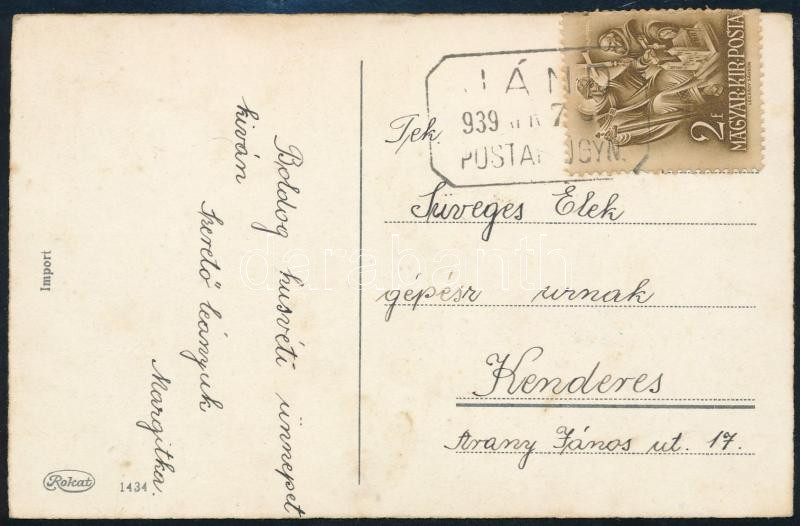 Boldog husvéti ünnepet
kiván
szerető leányuk
Margitka.
Import
Rokat
1434
JÁND
939
7
POSTA
2f
MAGYAR·KIR·POSTA
Tek.
Süveges Elek
gépész urnak
Kenderes
Arany János ut. 17.
darabanth